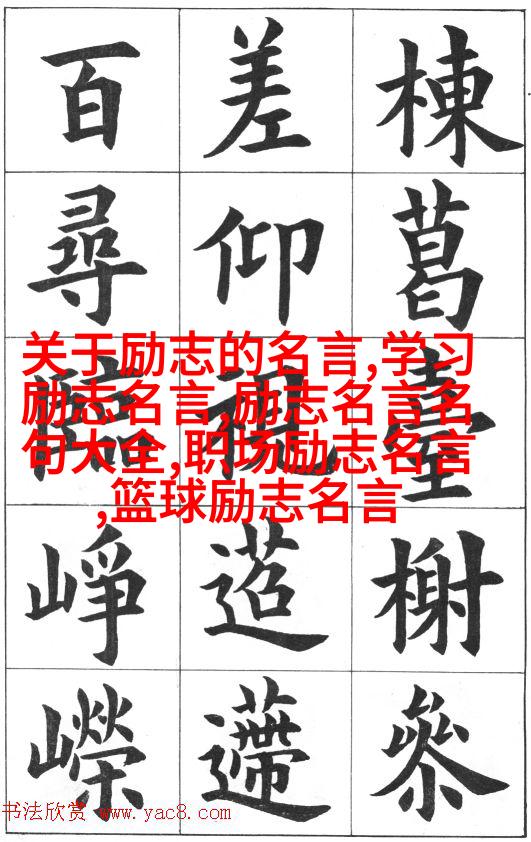 棟葛臺榭參
差仰視迢遰
百尋臨崢嶸
关于励志的名言,学习
励志名言,励志名言名
句大全,职场励志名言
,篮球励志名言
书法欣赏 www.yac8.com